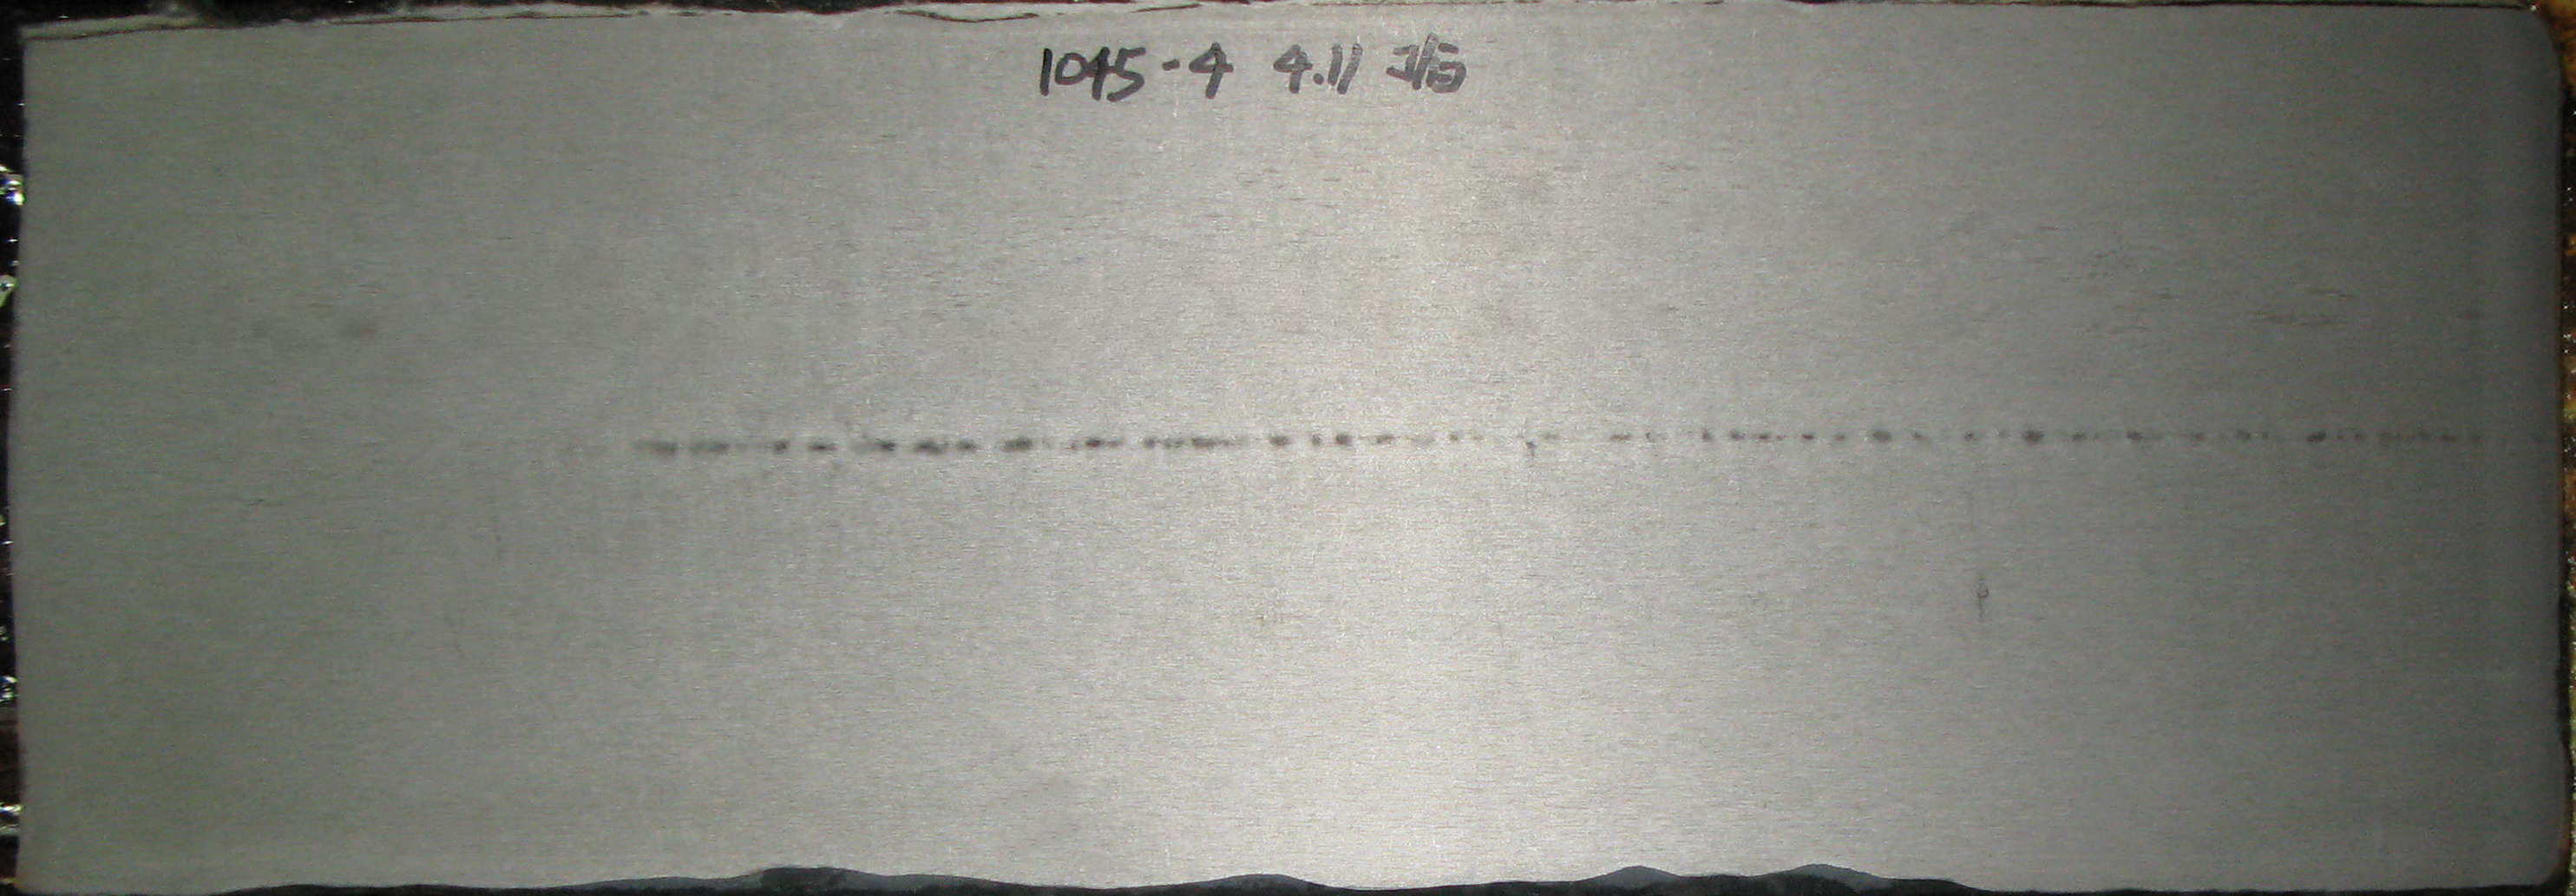 1045-4 4.11